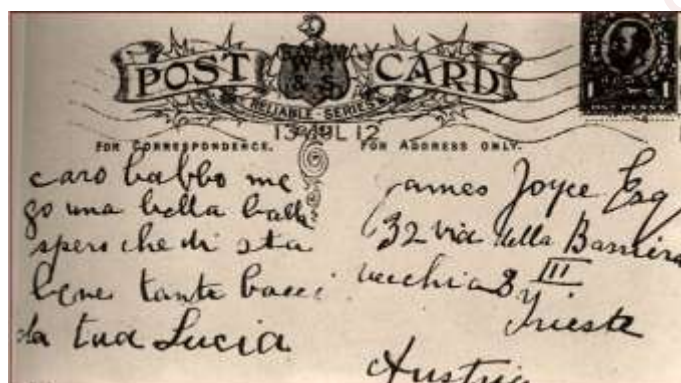 POST CARD
W R & S
RELIABLE SERIES
1
ONE PENNY
13 JUL 12
FOR CORRESPONDENCE.
FOR ADDRESS ONLY.
caro babbo me
go una bella balla
spero che di sta
bene tante bacci
la tua Lucia
James Joyce Esq
32 via della Barriera
vecchia III
Trieste
Austria